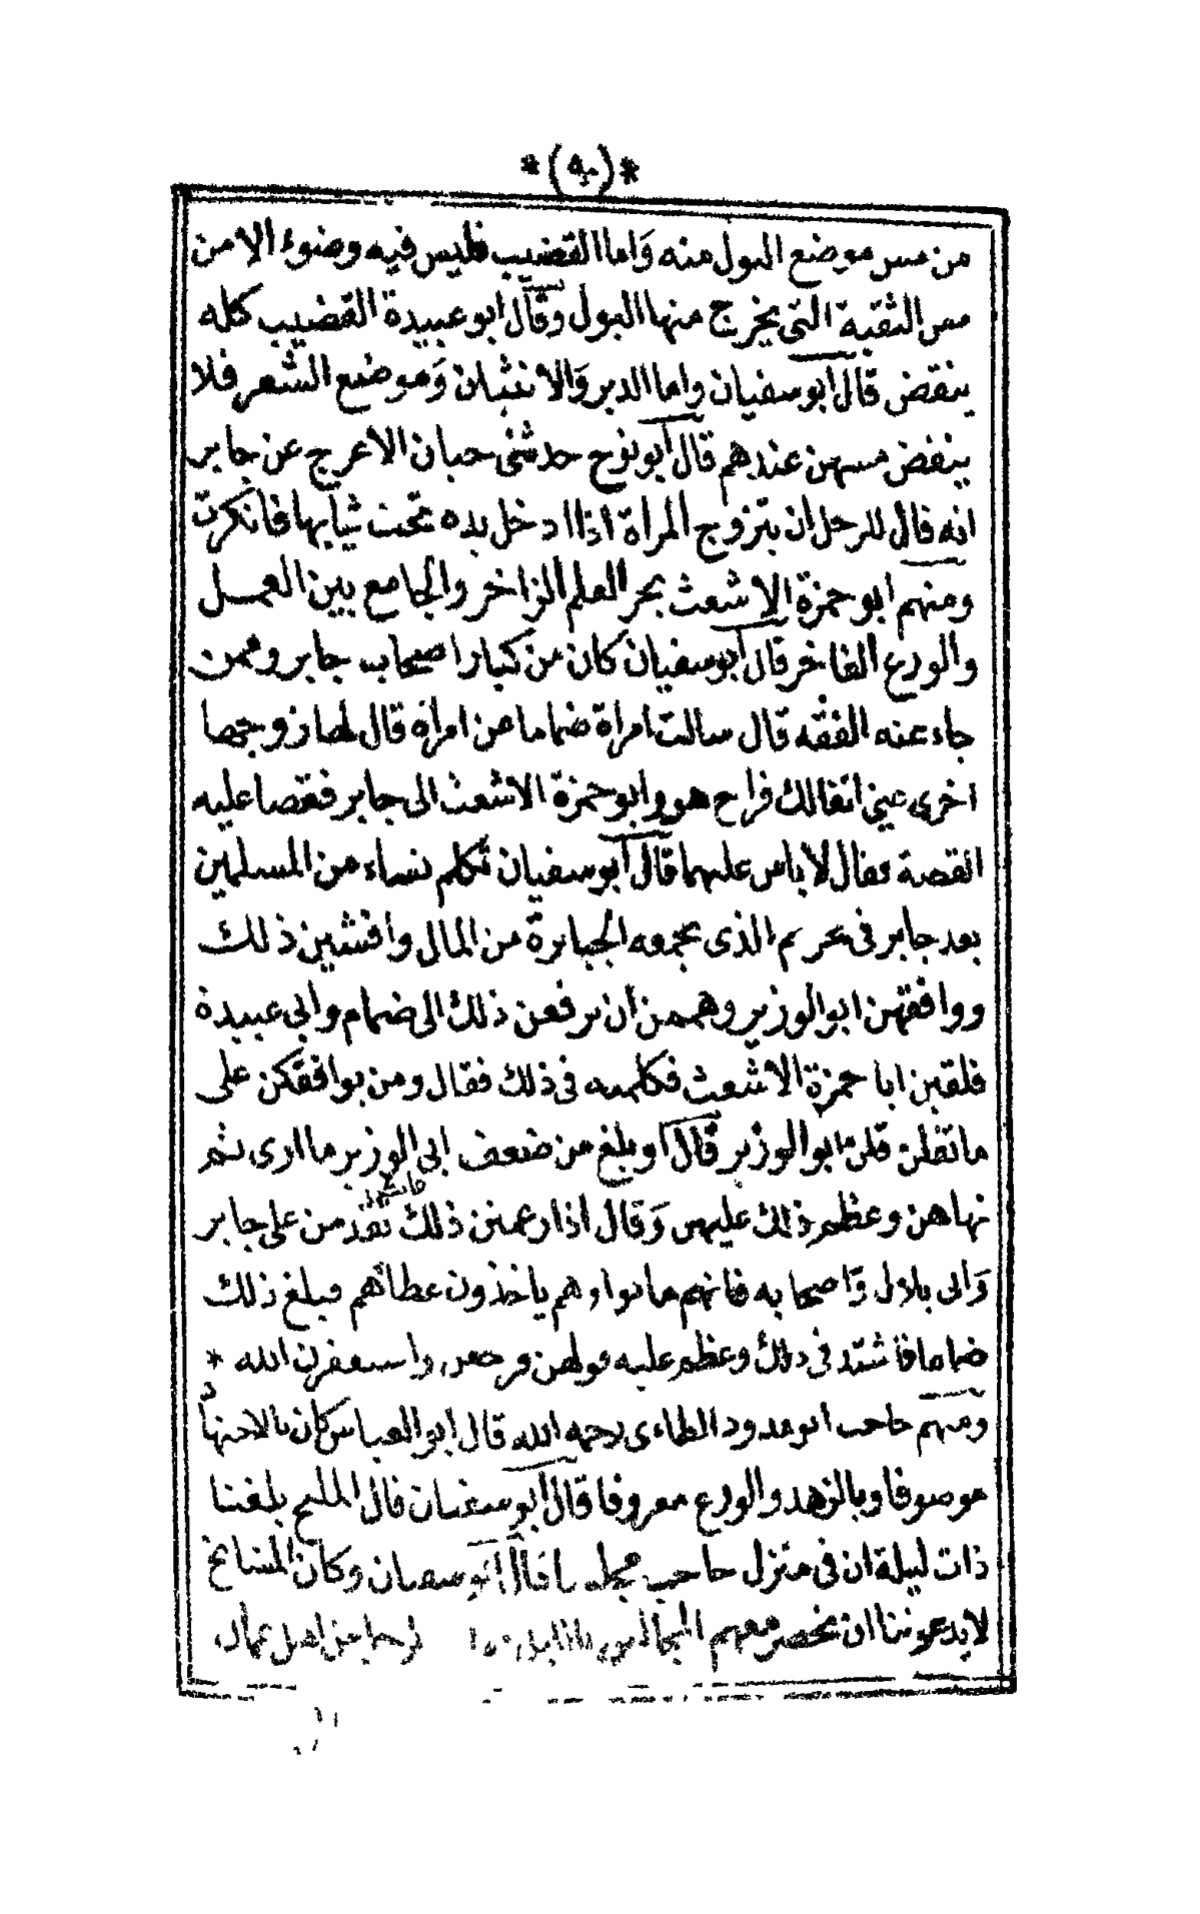 *(٩٠)*
من مس موضع البول منه وَاما القضيب فليس فيه وضوء الا من
مس الثقبة التى يخرج منها البول وقال ابو عبيدة القضيب كله
ينقض قال ابو سفيان واما الدبر وَالانثيان وَموضع الشعر فلا
ينقض مسهن عندهم قال ابو نوح حدثنى حبان الاعرج عن جابر
انه قال للرجل ان يتزوج المراة اذا ادخل يده تحت ثيابها فانكرت
ومنهم ابو حمزة الاشعث بحر العلم الزاخر والجامع بين العمل
والورع الفاخر قال ابو سفيان كان من كبار اصحاب جابر وممن
جاء عنه الفقه قال سالت امراة ضماما عن امراة قال لها زوجها
اخرى عينى انفالك فراح هو وابو حمزة الاشعث الى جابر فقصا عليه
القصة فقال لا باس عليهما قال ابو سفيان تكلم نساء من المسلمين
بعد جابر فى تحريم الذى يجمعه الجبابرة من المال وافشين ذلك
ووافقهن ابو الوزير وهممن ان يرفعن ذلك الى ضمام وابى عبيدة
فلقين ابا حمزة الاشعث فكلمنه فى ذلك فقال ومن يوافقكن على
ما تقلن قلن ابو الوزير قال او بلغ من ضعف ابى الوزير ما ارى ثم
نهاهن وعظم ذلك عليهن وَقال اذا زعمتن ذلك تقدمن على جابر
وَابى بلال وَاصحابه فانهم ماتوا وهم ياخذون عطائهم فبلغ ذلك
ضماما فاشتد فى ذلك وعظم عليه قولهن فرجعن واستغفرن الله *
ومنهم حاجب ابو مودود الطاءى رحمه الله قال ابو العباس كان بالاجتهاد
موصوفا وبالزهد والورع معروفا قال ابو سفيان قال المليح بلغنا
ذات ليلة ان فى منزل حاجب مجلسا قال ابو سفيان وكان المشايخ
لا يدعوننا ان نحضر معهم المجالس من اهل عمان